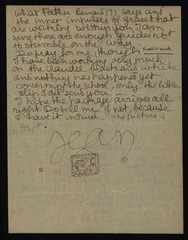 What Father Bernard (?) says and
the inner impulses of grace that
are working within you I am
sure there are enough guides not
to stumble on the way.
Do pray for me though
I have been working very much
on the
and nothing has happened yet
concerning the school, only the little
slip I did send you.
I hope the package arrives all
right. Do tell me if not, because
I have it insured. The picture
Jean